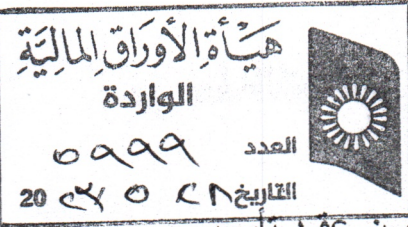 هيأة الأوراق المالية
الواردة
العدد ٥٩٩٩
التاريخ ٢٨ ٥ ٢٠٢٣